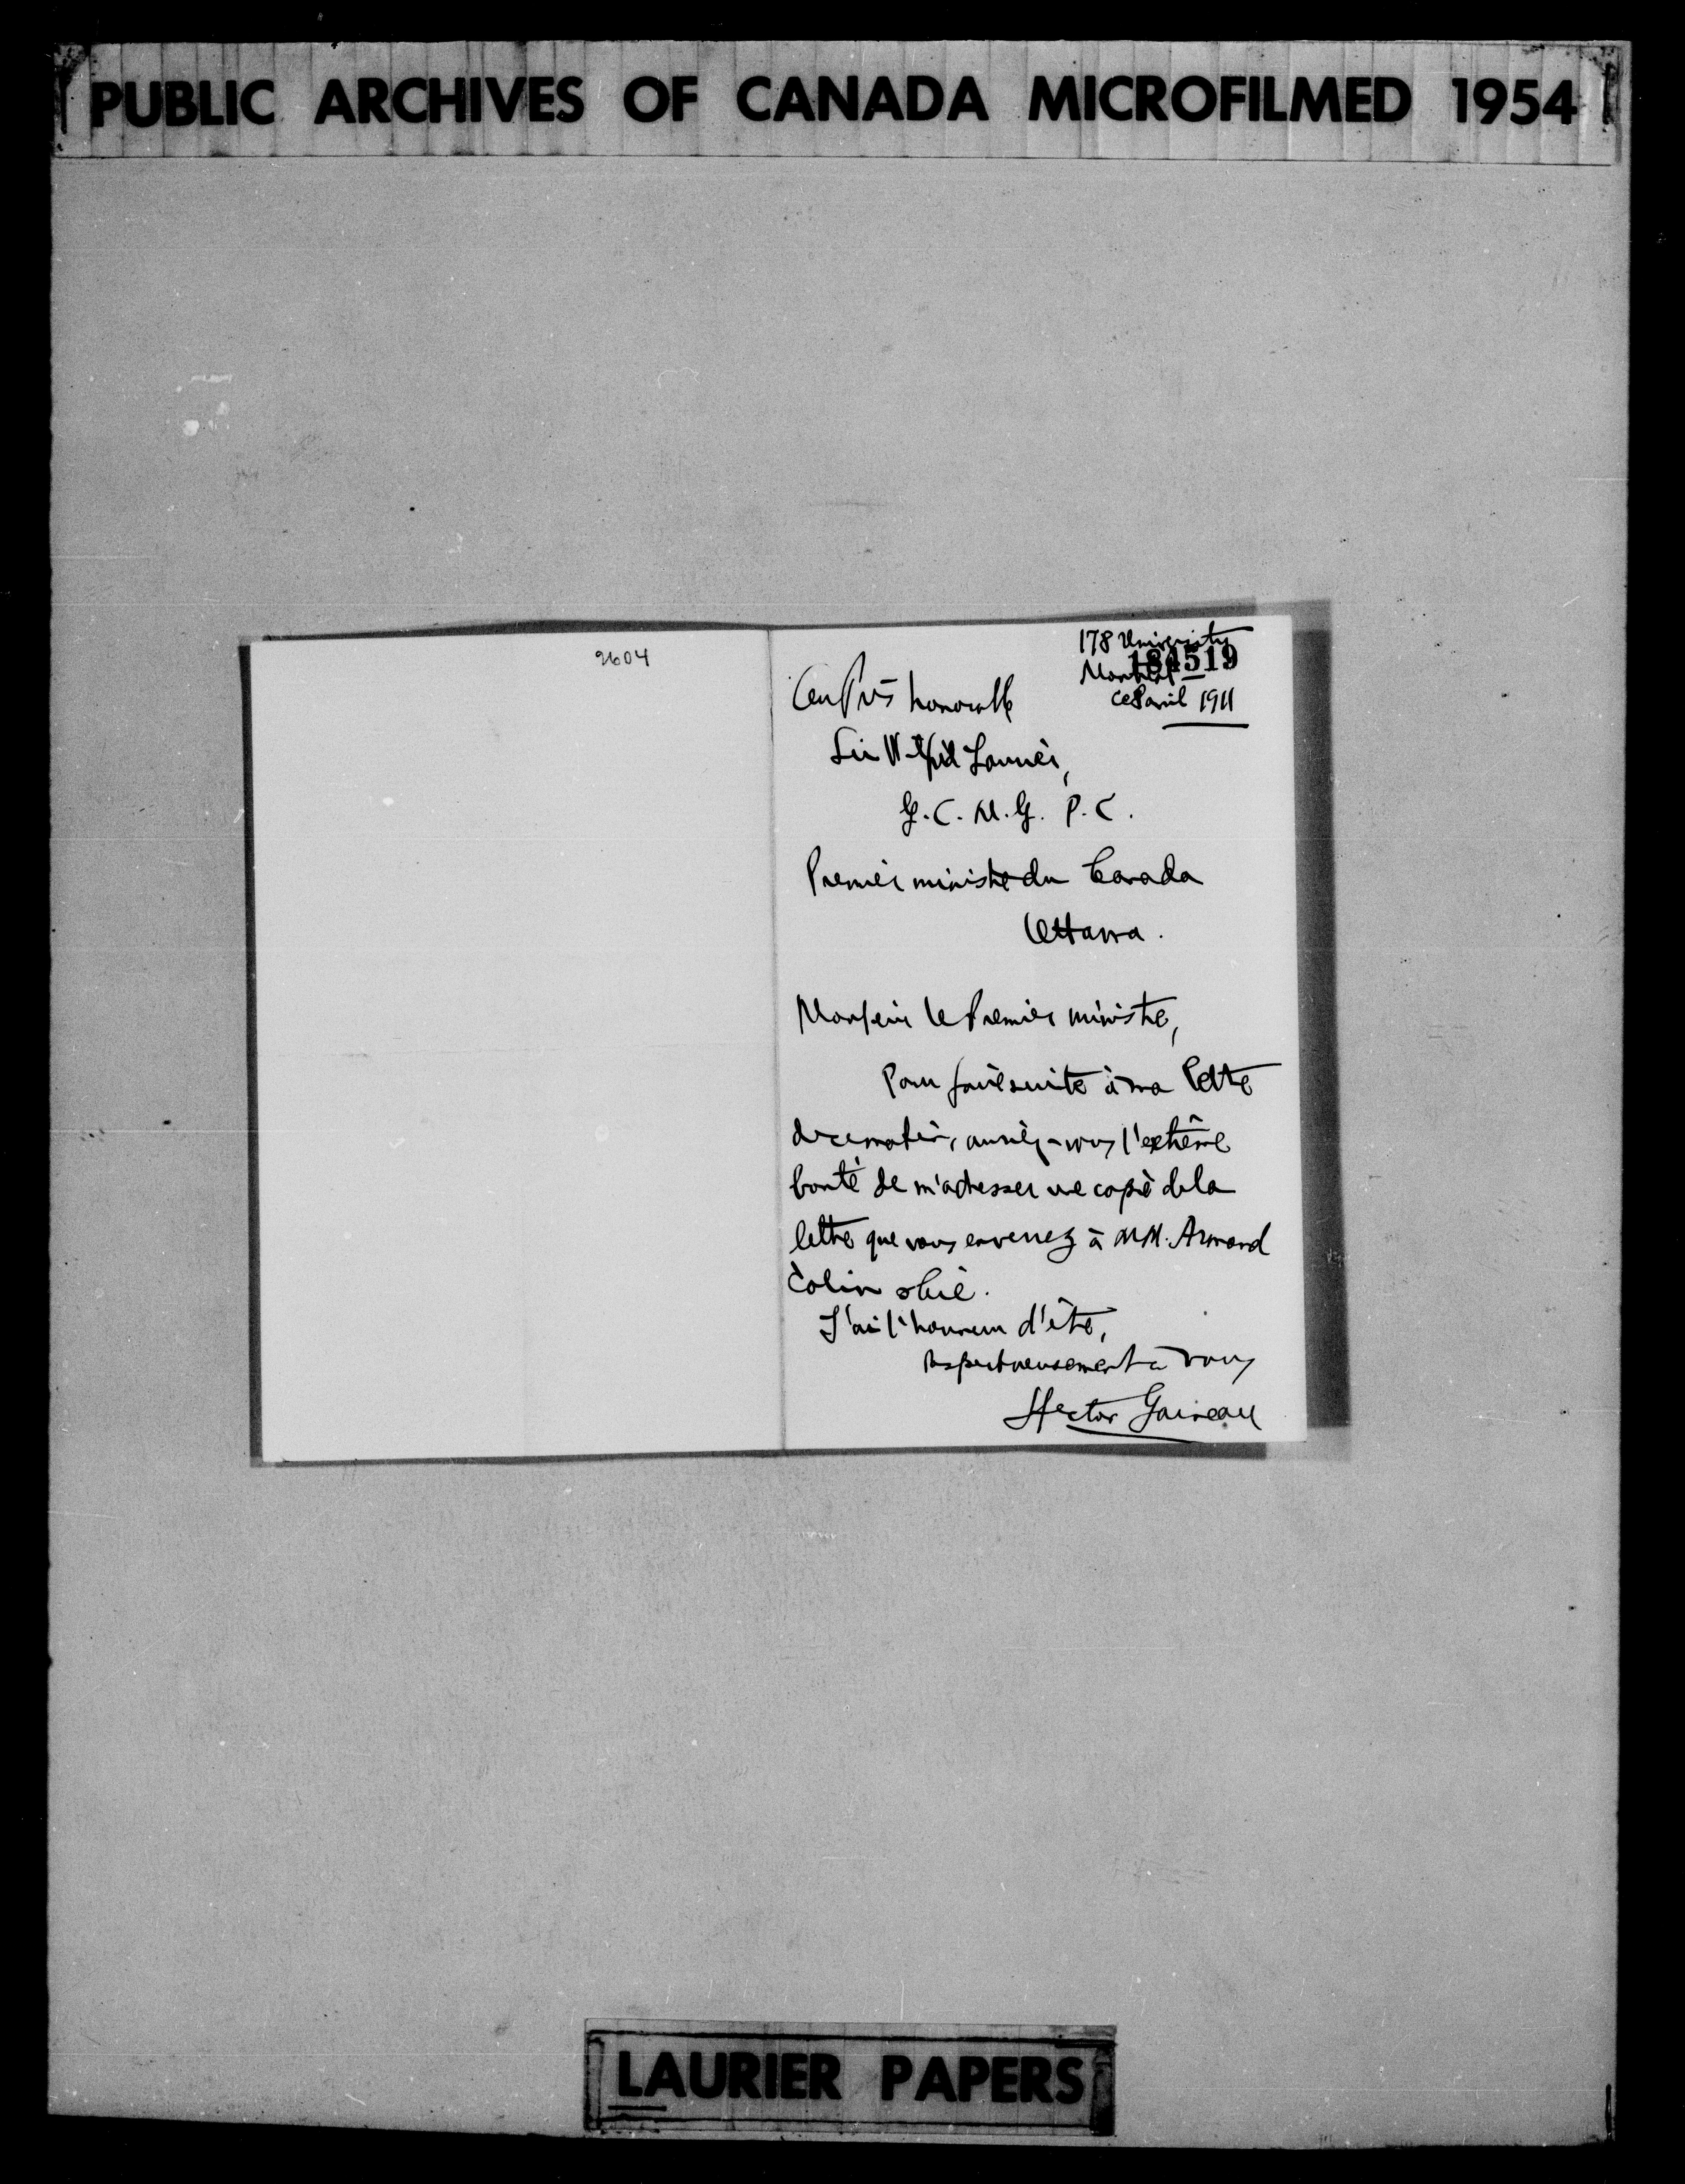 PUBLIC ARCHIVES OF CANADA MICROFILMED 1954
2604
178 University
184519
Montréal
ce 8 avril 1911
Au très honorable
Sir Wilfrid Laurier,
G.C.M.G. P.C.
Premier ministre du Canada
Ottawa.
Monsieur le Premier ministre,
Pour faire suite à ma lettre
de ce matin, auriez-vous l'extrême
bonté de m'adresser une copie de la
lettre que vous enverrez à MM. Armand
Colin & Cie.
J'ai l'honneur d'être,
respectueusement à vous
Hector Garneau
LAURIER PAPERS